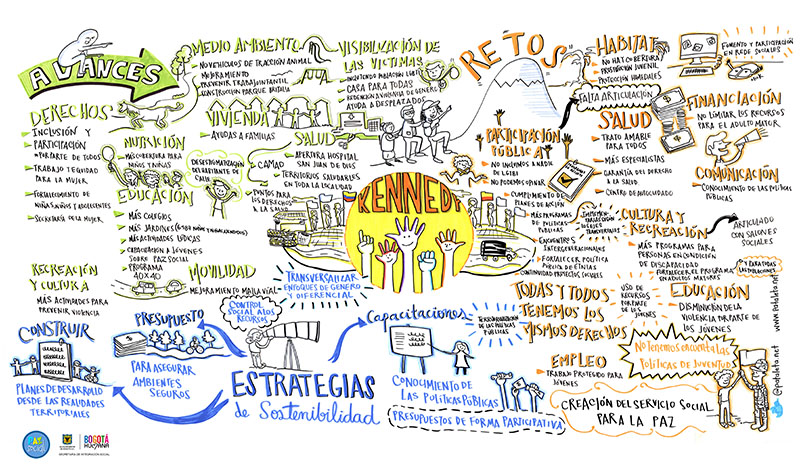 AVANCES
DERECHOS
INCLUSIÓN Y
PARTICIPACIÓN
POR PARTE DE TODOS
TRABAJO Y EQUIDAD
PARA LA MUJER
FORTALECIMIENTO DE
NIÑAS, NIÑOS Y ADOLESCENTES
SECRETARÍA DE LA MUJER
NUTRICIÓN
MÁS COBERTURA PARA
NIÑOS Y NIÑAS
EDUCACIÓN
MÁS COLEGIOS
MÁS JARDINES
MÁS ACTIVIDADES LÚDICAS
CAPACITACIÓN A JÓVENES
SOBRE PAZ SOCIAL
PROGRAMA
40X40
RECREACIÓN Y
CULTURA
MÁS ACTIVIDADES PARA
PREVENIR VIOLENCIA
MOVILIDAD
MEJORAMIENTO MALLA VIAL
MEDIO AMBIENTE
NO VEHÍCULOS DE TRACCIÓN ANIMAL
MEJORAMIENTO
PREVENIR TRABAJO INFANTIL
CONSTRUCCIÓN PARQUE
VIVIENDA
AYUDAS A FAMILIAS
DESESTIGMATIZACIÓN
DEL HABITANTE DE
CALLE
SALUD
APERTURA HOSPITAL
SAN JUAN DE DIOS
TERRITORIOS SALUDABLES
EN TODA LA LOCALIDAD
CAMAD
PUNTOS POR
LOS DERECHOS
A LA SALUD
VISIBILIZACIÓN DE
LAS VÍCTIMAS
POBLACIÓN LGBTI
CASA PARA TODAS
VIOLENCIA DE GÉNERO
AYUDA A DESPLAZADOS
KENNEDY
RETOS
PARTICIPACIÓN
PÚBLICA
NO INCLUIMOS A NADIE
DE LGTBI
NO PODEMOS OPINAR
CUMPLIMIENTO DE
PLANES DE ACCIÓN
MÁS PROGRAMAS
DE POLÍTICAS
PÚBLICAS
ENCUENTROS
INTERGENERACIONALES
FORTALECER POLÍTICA
PÚBLICA DE ETNIAS
CONTINUIDAD PROYECTOS SOCIALES
HABITAT
NO HAY COBERTURA
PROSTITUCIÓN JUVENIL
PROTECCIÓN HUMEDALES
FOMENTO Y PARTICIPACIÓN
EN REDES SOCIALES
FALTA ARTICULACIÓN
SALUD
TRATO AMABLE
PARA TODOS
MÁS ESPECIALISTAS
GARANTÍA DEL DERECHO
A LA SALUD
CENTRO DE AUTOCUIDADO
FINANCIACIÓN
NO LIMITAR LOS RECURSOS
PARA EL ADULTO MAYOR
COMUNICACIÓN
CONOCIMIENTO DE LAS POLÍTICAS
PÚBLICAS
CULTURA Y
RECREACIÓN
MÁS PROGRAMAS PARA
PERSONAS EN CONDICIÓN
DE DISCAPACIDAD
FORTALECER EL PROGRAMA
EN ADULTOS MAYORES
ARTICULADO
CON SALONES
SOCIALES
TODAS Y TODOS
TENEMOS LOS
MISMOS DERECHOS
USO DE
RECURSOS
POR PARTE DE
LOS JÓVENES
EDUCACIÓN
DISMINUCIÓN DE LA
VIOLENCIA POR PARTE DE
LOS JÓVENES
EMPLEO
TRABAJO PROTEGIDO PARA
JÓVENES
No tenemos en cuenta las
Políticas de Juventud
CREACIÓN DEL SERVICIO SOCIAL
PARA LA PAZ
TRANSVERSALIZAR
ENFOQUES DE GÉNERO
Y DIFERENCIAL
CONTROL
SOCIAL A LOS
RECURSOS
CONSTRUIR
PLANES DE DESARROLLO
DESDE LAS REALIDADES
TERRITORIALES
PRESUPUESTO
PARA ASEGURAR
AMBIENTES
SEGUROS
ESTRATEGIAS
de Sostenibilidad
Capacitaciones
CONOCIMIENTO DE
LAS POLÍTICAS PÚBLICAS
PRESUPUESTOS DE FORMA PARTICIPATIVA
www.patatato.net
@patatato.net
BOGOTÁ
HUMANA
SECRETARÍA DE INTEGRACIÓN SOCIAL